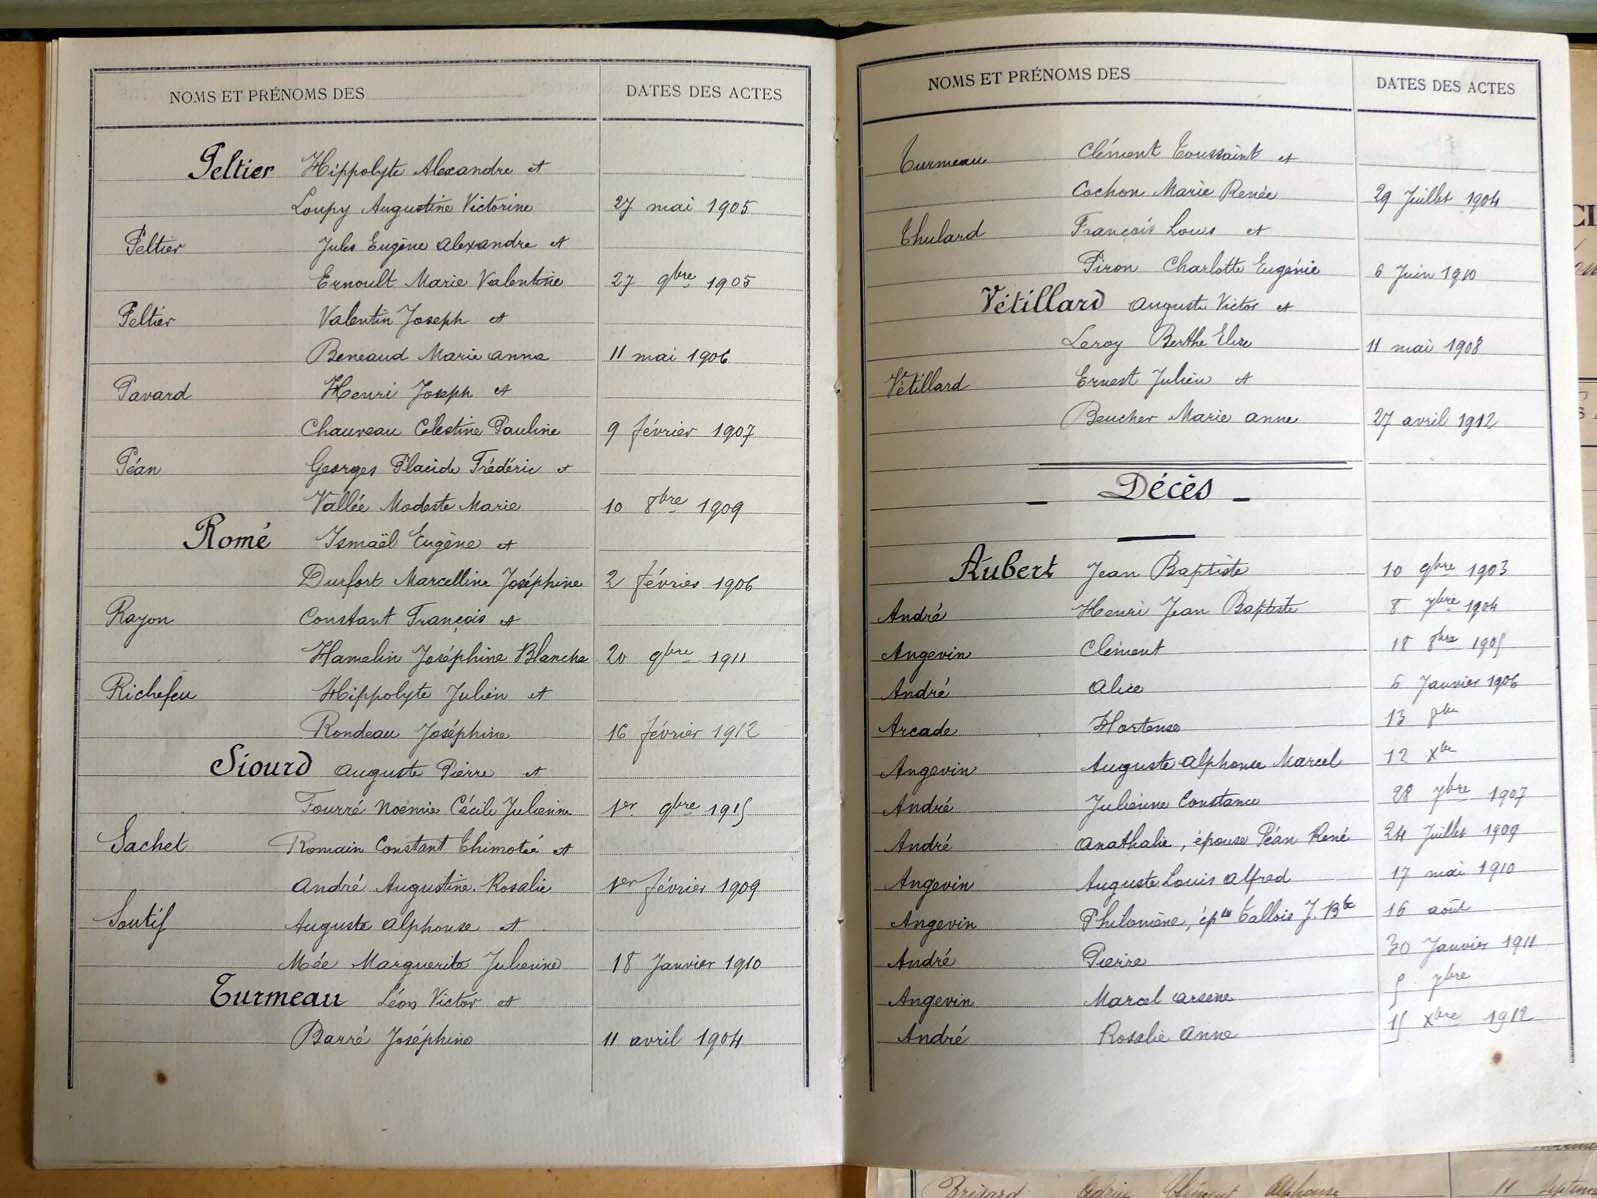 NOMS ET PRÉNOMS DES DATES DES ACTES
Peltier Hippolyte Alexandre et
Loupy Augustine Victorine 27 mai 1905
Peltier Jules Eugène Alexandre et
Ernoult Marie Valentine 27 9bre 1905
Peltier Valentin Joseph et
Beneaud Marie Anna 11 mai 1906
Pavard Henri Joseph et
Chauveau Célestine Pauline 9 février 1907
Péan Georges Placide Frédéric et
Vallée Modeste Marie 10 8bre 1909
Romé Ismaël Eugène et
Durfort Marcelline Joséphine 2 février 1906
Rayon Constant François et
Hamelin Joséphine Blanche 20 9bre 1911
Richefeu Hippolyte Julien et
Rondeau Joséphine 16 février 1912
Siourd Auguste Pierre et
Fourré Noémie Cécile Julienne 1er 9bre 1915
Sachet Romain Constant Thimoté et
André Augustine Rosalie 1er février 1909
Soutif Auguste Alphonse et
Mée Marguerite Julienne 18 Janvier 1910
Turmeau Léon Victor et
Barré Joséphine 11 avril 1904
NOMS ET PRÉNOMS DES DATES DES ACTES
Turmeau Clément Toussaint et
Cochon Marie Renée 29 Juillet 1904
Thulard François Louis et
Piron Charlotte Eugénie 6 Juin 1910
Vétillard Auguste Victor et
Leroy Berthe Elise 11 mai 1908
Vétillard Ernest Julien et
Beucher Marie Anne 27 avril 1912
Décès
Aubert Jean Baptiste 10 9bre 1903
André Henri Jean Baptiste 8 7bre 1904
Angevin Clément 18 8bre 1905
André Alice 5 Janvier 1906
Arcade Hortense 13 8bre
Angevin Auguste Alphonse Marcel 12 Xbre
André Julienne Constance 28 7bre 1907
André Anathalie, épouse Péan René 24 Juillet 1909
Angevin Auguste Louis Alfred 17 mai 1910
Angevin Philomène, épse Tallois J. Bte 16 août
André Pierre 30 Janvier 1911
Angevin Marcel Arsène 5 7bre
André Rosalie Anne 15 Xbre 1912
Clément Alphonse